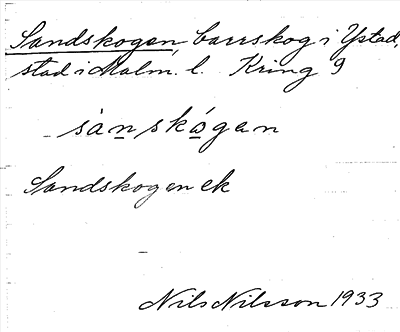 Sandskogen, barrskog i Ystad,
stad i Malm. l. Kring 9
sànskógan
Sandskogen ek
Nils Nilsson 1933